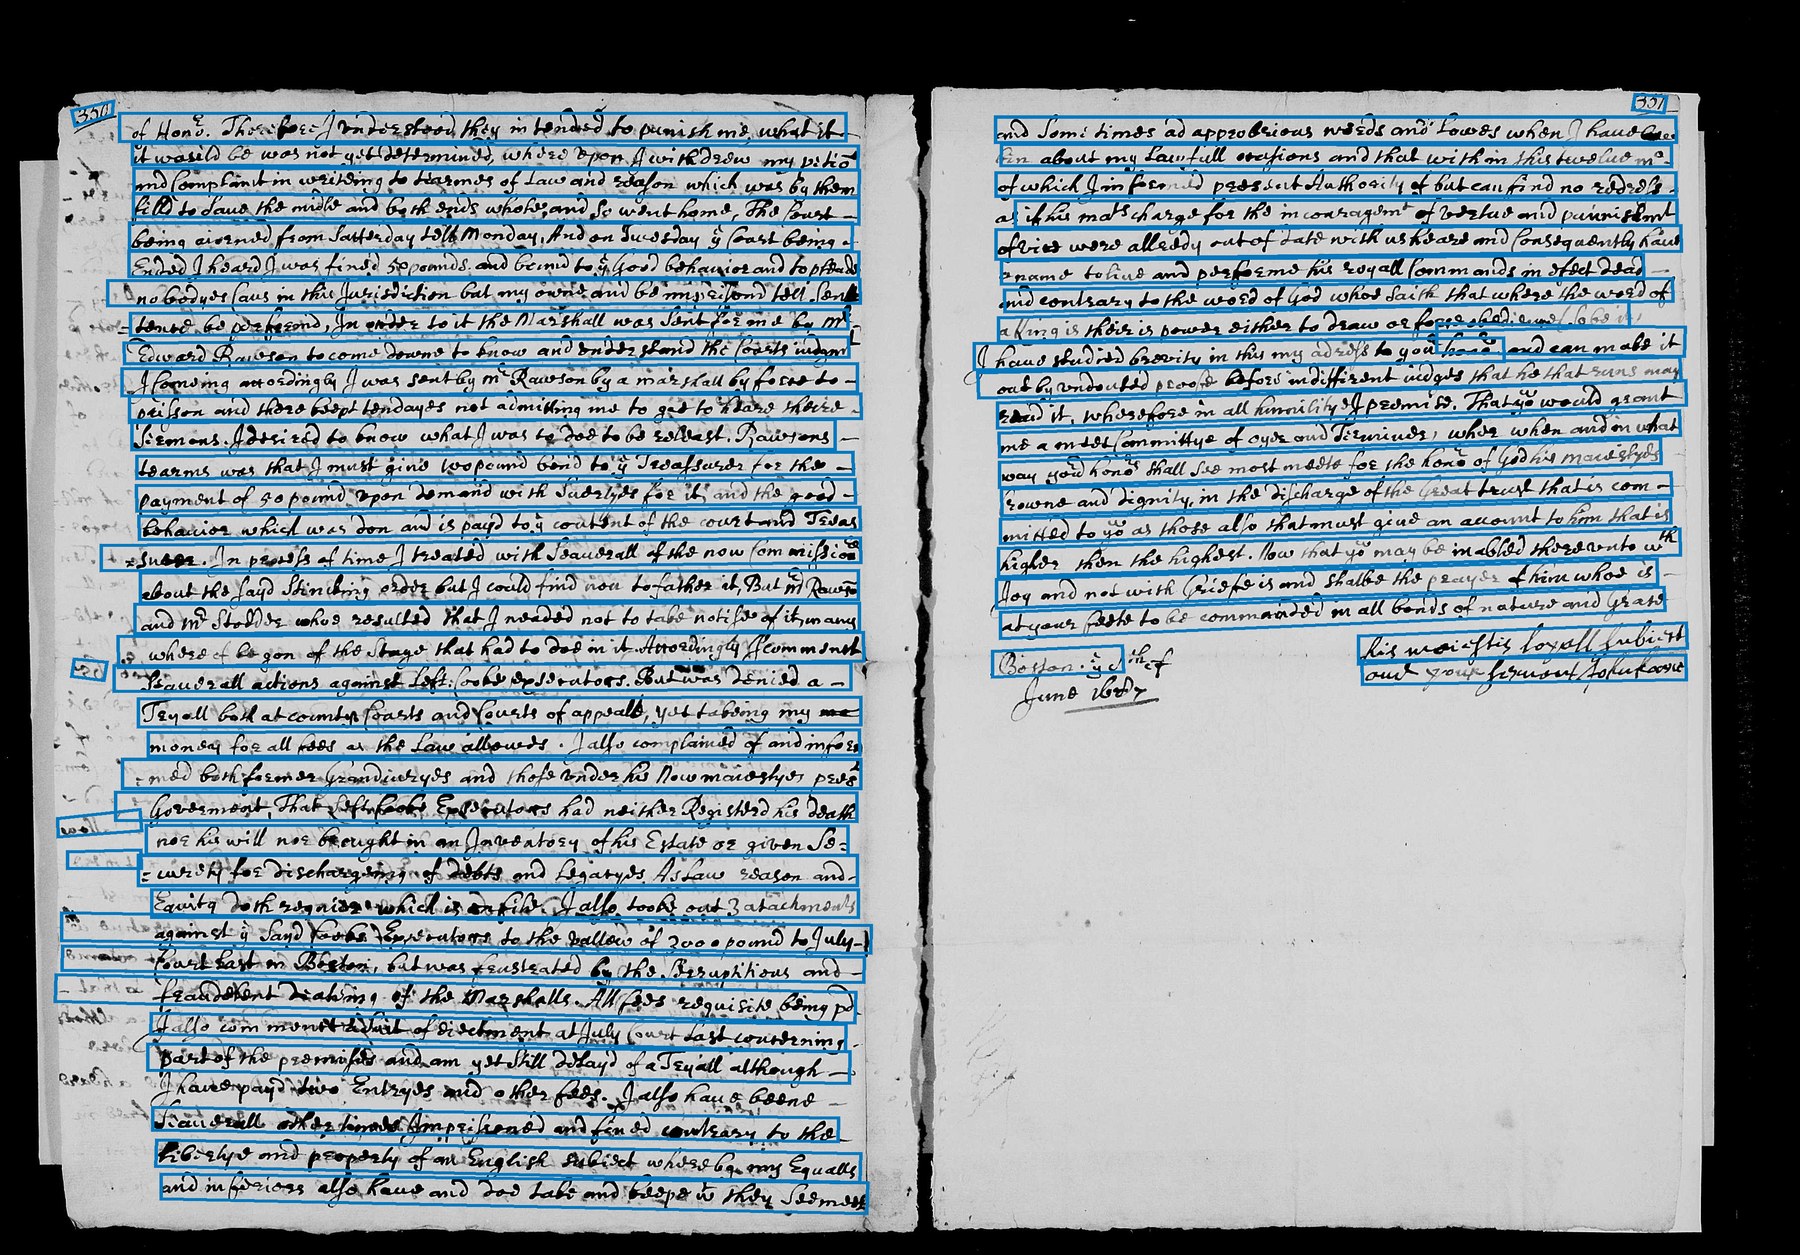 350
of Honr. Therefore I understood they intended to punish me, what it
it would be was not yet determined, where upon I withdrew my petiō
and Complant in writeing to tearmes of Law and reason which was by them
killd to saue the midle and both ends whole, and so went home, The Court
being aiorned from Satterday tell Monday, And on Tuesday ye Court being
Ended I heard I was fined 50 pounds and bound to ye Good behavior and to plead
no bodyes Caus in this Jurisdiction but my owne and be imprisond tell Sen
tence be performd, In order to it the Marshall was Sent for me by Mr
Edward Rawson to come downe to know and understand the Courts iudgmt
I Comeing accordingly I was sent by mr Rawson by a marshall by force to
prisson and there keept ten dayes not admitting me to goe to heare there
Sermons. I desired to know what I was to doe to be releast. Rawsons
tearms was that I must give 100 pound bond to ye Treassurer for the
payment of 50 pound upon demand with Suertyes for it, and the good
behavior which was don and is payd to ye content of the court and Treas
=surer. In process of time I treated with Seaverall of the now Commissioe
about the sayd Stinting order but I could find non to father it, But Mr Rawsō
and Mr Stodder whoe resulted that I neaded not to take notise of it, many
where of be gon of the Stage that had to doe in it. Accordingly I comment
Seaverall actions against Left: Cooke exsecutors. But was denied a
Tryall both at county Courts and Courts of appeall, yet takeing my
money for all fees as the Law allowes. I also complained of and infor
=med both former Grandiueryes and those under his Now maiestyes pres
Goverment, That Left Cooke Exsecutors had neither Registerd his death
nor his will nor brought in an Inventory of his Estate or given Se=
=curety for dischargeing of debts and Legacyes As Law reason and
Equity doth require which is on file. I also tooke out 3 atachments
against ye sayd Cooke Exsecutors to the vallew of 2000 pound to July
Court Last in Boston, but was frustrated by the Serruptitious and
fraudelent dealing of the Marshalls. All fees requisite being pd
I also comment a suit of eiectment at July Court Last concerning
part of the premises and am yet still delayd of a Tryall although
I have payd two Entryes and other fees. I also have beene
Seaverall other times Imprisoned and fined contrary to the
Libertye and property of an English subiect where by my Equalls
and inferiors also have and doe take and keepe wt they seemeet
351
and Some times ad approbrious words and blowes when I have
bin about my Lawfull ocasions and that with in this twelue mo
of which I informed present Authority of but can find no redress
as if his mats charge for the incouragemt of vertue and punnishmt
of vice were allredy out of date with us heare and Consequently have
a name to live and performe his royall Commands in efect dead
and contrary to the word of God whoe saith that where the word of
a King is their is power either to draw or force obedience
I have studied brevity in this my adress to your honor and can make it
out by undouted proofe before indifferent iudges that he that runs may
read it, Wherefore in all humility I premise. That yo would grant
me a meet Committye of oyer and Terminer, wher when and in what
way your honor shall see most meete for the honor of God his maiestyes
Crowne and dignity, in the discharge of the Great trust that is com
mitted to yo as those also that must give an account to him that is
higher then the highest. Now that yo may be inabled thereunto wth
Joy and not with Griefe is and shalbe the prayer of him whoe is
at your feete to be commanded in all bonds of nature and Grace
his maiestis loyall subiect
and your servant
Boston. ye th of
June 1687